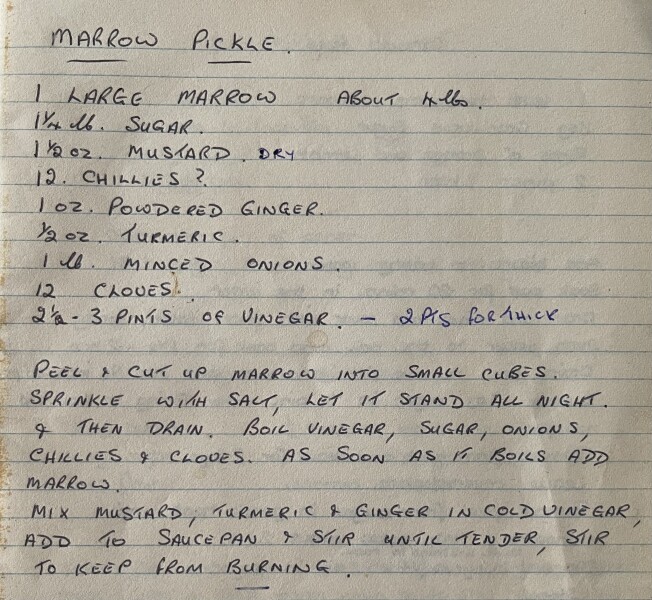 MARROW PICKLE.
1 LARGE MARROW ABOUT 4 lbs.
1 1/4 lb. SUGAR.
1 1/2 oz. MUSTARD. DRY
12. CHILLIES ?
1 oz. POWDERED GINGER.
1/2 oz. TURMERIC.
1 lb. MINCED ONIONS.
12 CLOVES.
2 1/2 - 3 PINTS OF VINEGAR. - 2 PTS FOR THICK
PEEL & CUT UP MARROW INTO SMALL CUBES.
SPRINKLE WITH SALT, LET IT STAND ALL NIGHT.
& THEN DRAIN. BOIL VINEGAR, SUGAR, ONIONS,
CHILLIES & CLOVES. AS SOON AS IT BOILS ADD
MARROW.
MIX MUSTARD, TURMERIC & GINGER IN COLD VINEGAR,
ADD TO SAUCEPAN & STIR UNTIL TENDER, STIR
TO KEEP FROM BURNING.